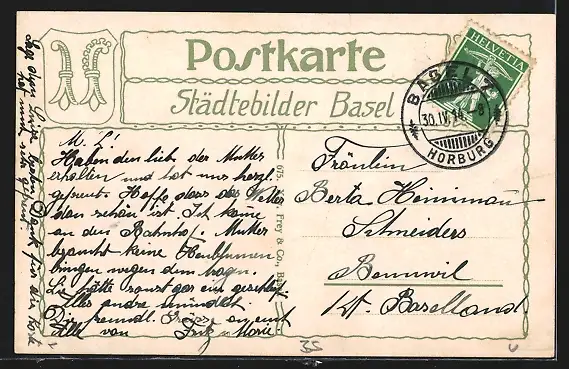 Postkarte
Städtebilder Basel
HELVETIA
BASEL 2
30.IV.14. 8
HORBURG
M. L.!
Haben den lieb. der Mutter
erhalten und hat uns herzl.
gefreut. Hoffe dass das Wetter
dan schön ist. Ich komme
an den Bahnhof. Mutter
braucht keine
bringen wegen dem tragen.
hätte sonst gar ein
Alles andre mündlich
Die freundl. Grüsse an euch
Alle von Fritz u. Marie
Sagt Dank für die Karte
hat mich sehr gefreut
Frey & Co.,
Fräulein
Berta Heinimann
Schneiders
Bennwil
Kt. Baselland